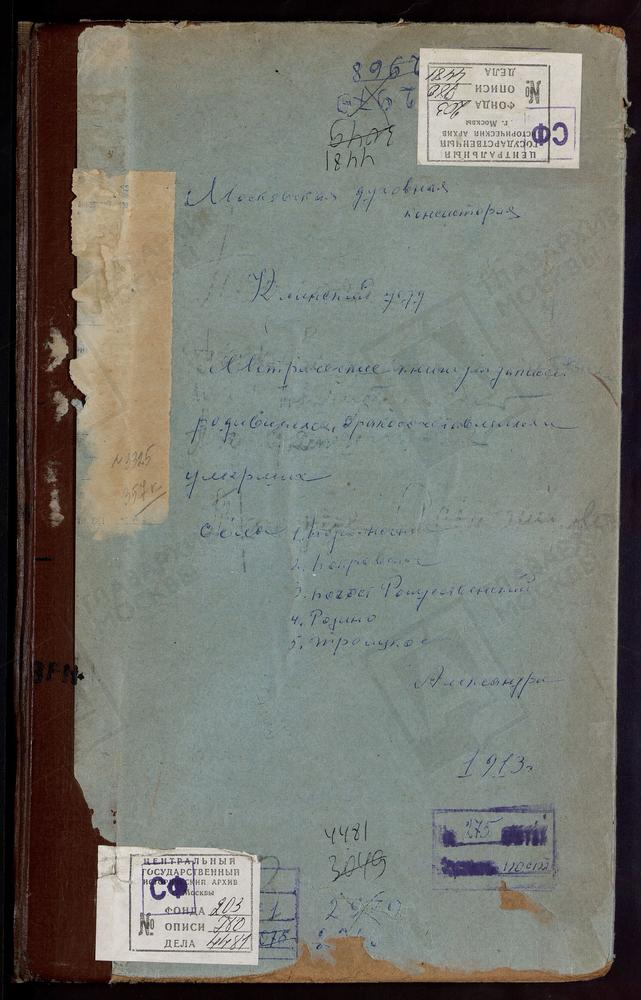 2968
3049
4481
ЦЕНТРАЛЬНЫЙ
ГОСУДАРСТВЕННЫЙ
ИСТОРИЧЕСКИЙ АРХИВ
г. Москвы
СФ
ФОНДА 203
№ ОПИСИ 780
ДЕЛА 4481
Московская духовная
консистория
Клинский уезд
Метрические книги записи
родившихся, бракосочетавшихся и
умерших
N 3325
357 л
Села
2. Покровское
3. погост Рождественский
4. Розино
5. Троицкое
Александра
1913г
275
4481
3049
ЦЕНТРАЛЬНЫЙ
ГОСУДАРСТВЕННЫЙ
ИСТОРИЧЕСКИЙ АРХИВ
г. Москвы
СФ
ФОНДА 203
№ ОПИСИ 780
ДЕЛА 4481